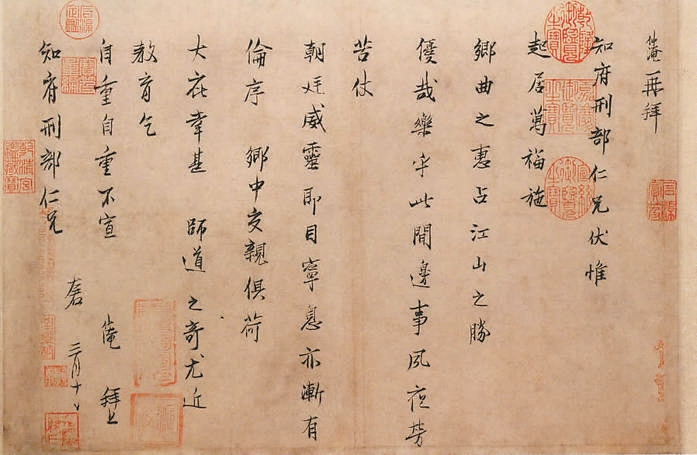 仲淹再拜
知府刑部仁兄伏惟
起居萬福施
鄉曲之惠占江山之勝
優哉樂乎此間邊事夙夜勞
苦仗
朝廷威靈即目寧息亦漸有
倫序鄉中交親俱荷
大庇幸甚 師道之奇尤近
教育乞
自重自重不宣 淹拜上
知府刑部仁兄 三月十日